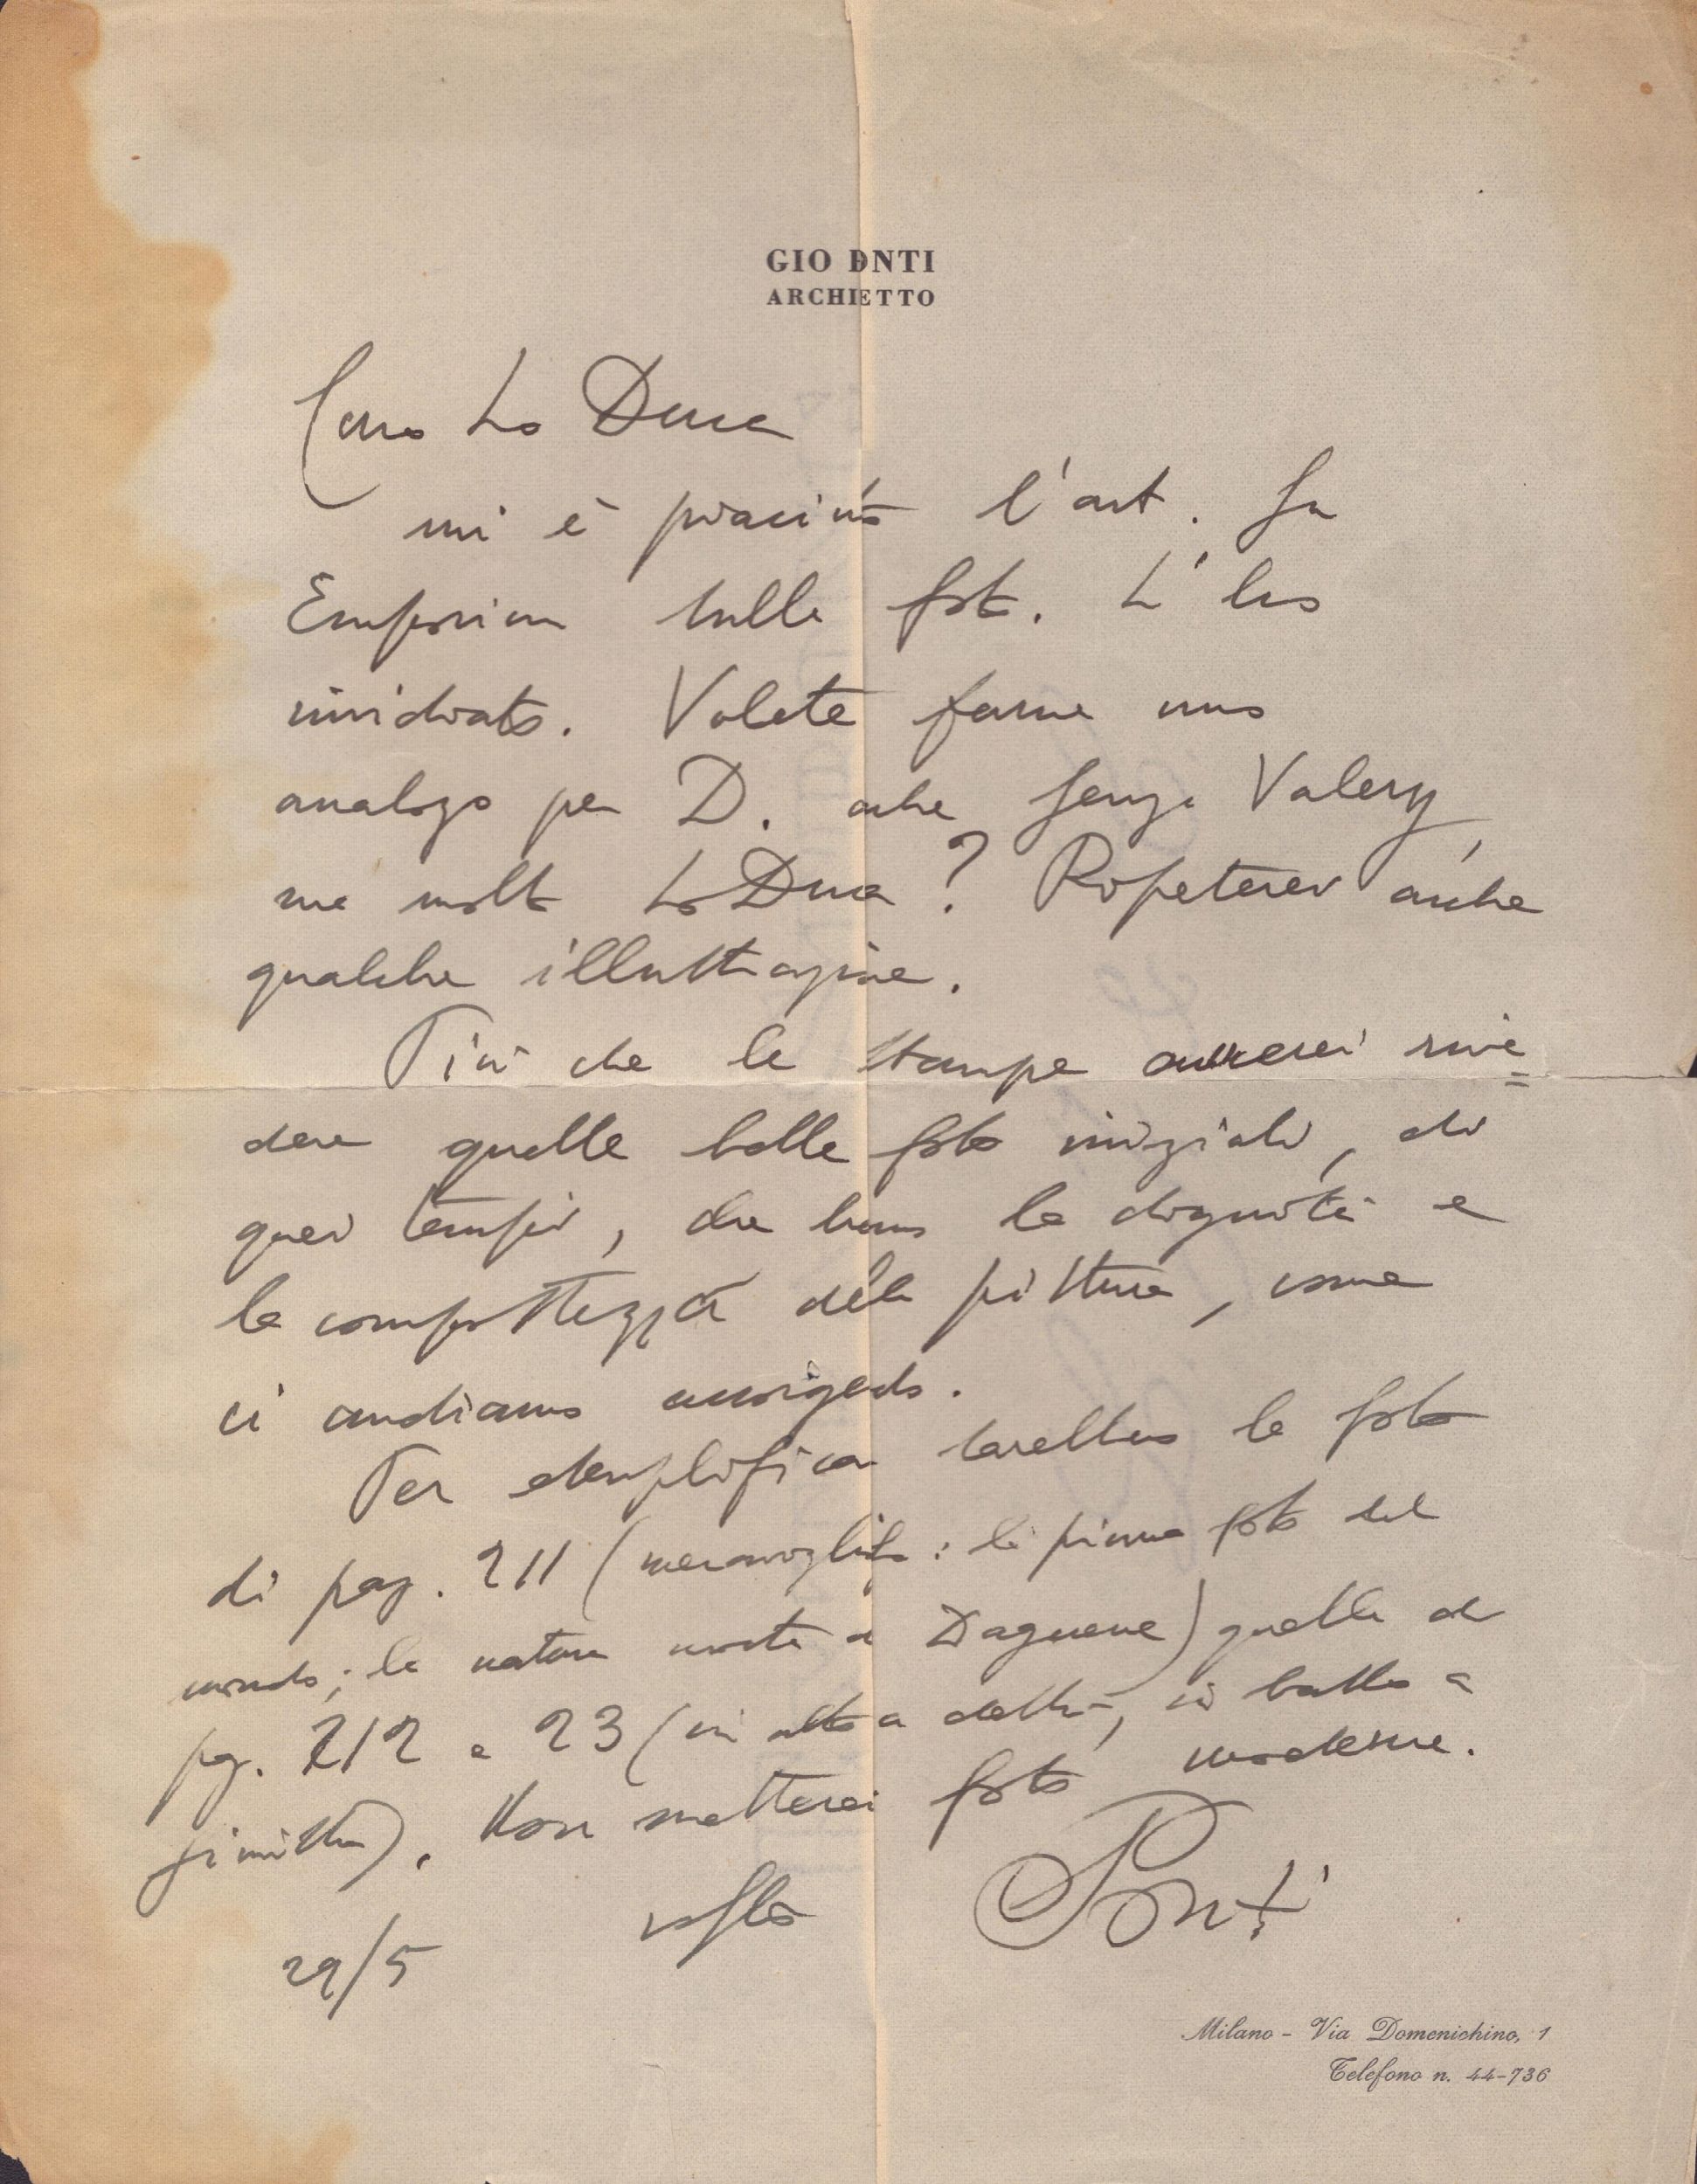 GIO PONTI
ARCHITETTO
Caro Lo Duca
mi è piaciuto l'art. su
Emporium sulla foto. L'ho
invidiato. Volete farne uno
analogo per D. anche senza Valery,
ma molto Lo Duca? Ripeterei anche
qualche illustrazione.
Più che le stampe amerei rive=
dere quelle belle foto iniziali, di
quei tempi, che hanno la dignità e
la compostezza della pittura, come
ci andiamo accorgendo.
Per esemplificar le foto
di pag. 211 (meravigliosa: la prima foto del
mondo; la natura morta di Daguerre) quelle di
pg. 212 e 23 (in alto a destra, in basso a
sinistra). Non metterei foto moderne.
29/5 vostro Ponti
Milano - Via Domenichino, 1
Telefono n. 44-736